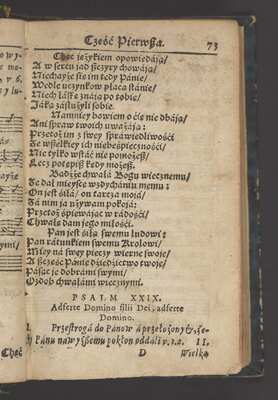 Część Pierwsza. 73
Chęć językiem opowiedają/
A w sercu jad szczyry chowają/
Niechayże sie im tedy Panie/
Wedle uczynkow płaca stanie/
Niech łáskę znáją po tobie/
Jáką zásłużyli sobie.
Namniey bowiem o cię nie dbáją/
Ani spraw twoich uważáją:
Przetoż im z swey spráwiedliwości
Ze wszelkiey ich niebespieczności/
Nie tylko wstáć nie pomożesz/
Lecz potępisz kiedy możesz.
Bądźże chwałá Bogu wiecznemu/
Że dał mieysce wzdychániu memu:
On jest siłá/ on tarczą mojá/
Zá nim ja używam pokojá:
Przetoż śpiewájąc w rádości/
Chwałę dam jego miłości.
Pan jest siłą swemu ludowi:
Pan rátunkiem swemu Krolowi/
Miey ná swey pieczy wierne swoje/
A szczęść Pánie dziedzictwo twoje/
Páśąc je dobrámi swymi/
Ozdob chwałámi wiecznymi.
PSALM XXIX.
Adferte Domino filii Dei, adferte
Domino.
1. Przestrogá do Pánow á przełożonych, że-
by Pánu nawyższemu pokłon oddáli v.1.2. II.
D Wielką
Chęć